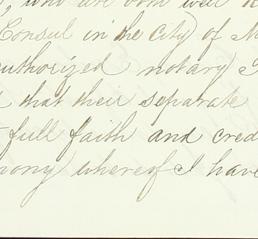 , who are both well
Consul in the City of
authorized notary
that their separate
full faith and cred
mony whereof I have